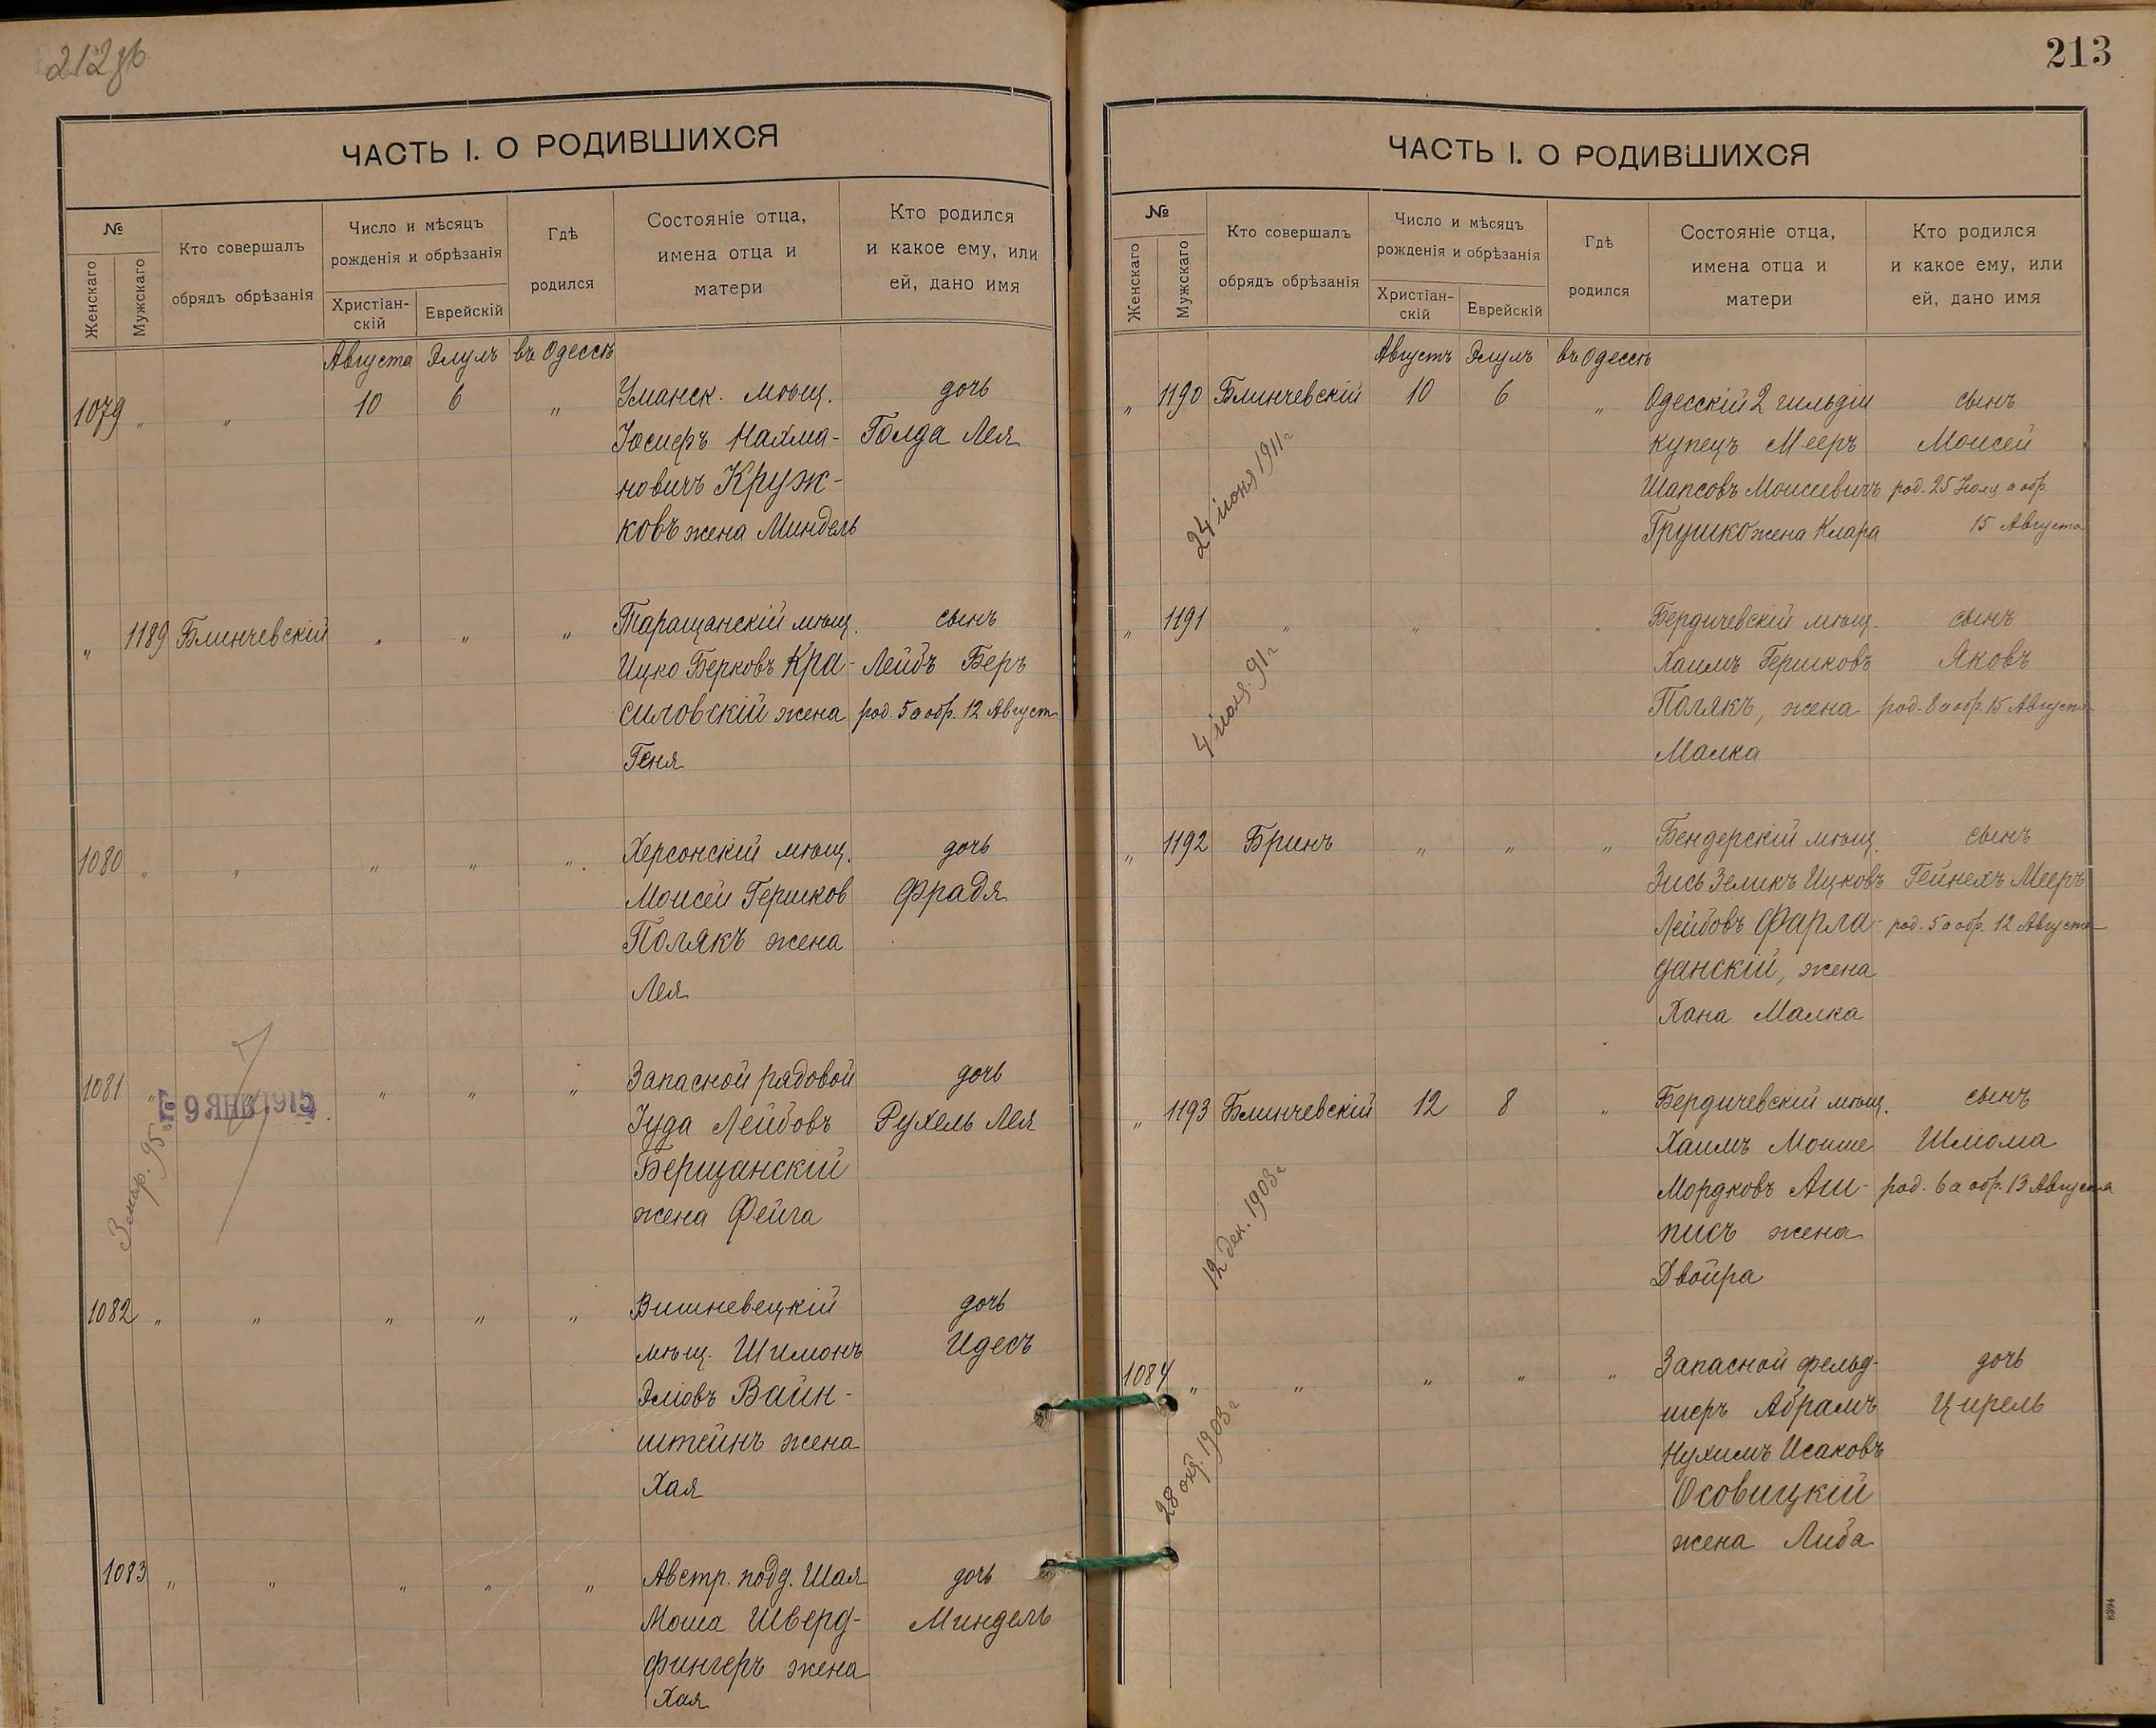 212 об
ЧАСТЬ I. О РОДИВШИХСЯ
№
Женскаго
Мужскаго
Кто совершалъ
обрядъ обрѣзанія
Число и мѣсяцъ
рожденія и обрѣзанія
Христіан-
скій
Еврейскій
Гдѣ
родился
Состояніе отца,
имена отца и
матери
Кто родился
и какое ему, или
ей, дано имя
Августа Элулъ въ Одессѣ
1079 " " 10 6 " Уманск. мѣщ. дочь
Іосифъ Нахма- Голда Лея
новичъ Круж-
ковъ жена Миндель
" 1189 Блинчевскій " " " Таращанскій мѣщ. сынъ
Ицко Берковъ Кра- Лейбъ Беръ
силовскій жена род. 5 а обр. 12 Август
Геня
1080 " " " " " Херсонскій мѣщ. дочь
Моисей Гершков Фрадя
Полякъ жена
Лея
1081 " " " " Запасной рядовой дочь
6 ЯНВ 1916
Іуда Лейбовъ Рухель Лея
3 мар. 95 г.
Берщанскій
жена Фейга
1082 " " " " " Вишневецкій дочь
мѣщ. Шимонъ Идесъ
Эліовъ Вайн-
штейнъ жена
Хая
1083 " " " " " Австр. подд. Шая дочь
Моша Шверд- Миндель
фингеръ жена
Хая
213
ЧАСТЬ I. О РОДИВШИХСЯ
№
Женскаго
Мужскаго
Кто совершалъ
обрядъ обрѣзанія
Число и мѣсяцъ
рожденія и обрѣзанія
Христіан-
скій
Еврейскій
Гдѣ
родился
Состояніе отца,
имена отца и
матери
Кто родился
и какое ему, или
ей, дано имя
Августъ Элулъ въ Одессѣ
" 1190 Блинчевскій 10 6 " Одесскій 2 гильдіи сынъ
купецъ Мееръ Моисей
Шапсовъ Моисеевичъ род. 25 Іюля а обр.
Грушко жена Клара 15 Августа
24 іюня 1911 г
" 1191 " " " " Бердичевскій мѣщ. сынъ
Хаимъ Гершковъ Яковъ
Полякъ, жена род. 8 а обр. 15 Августа
Малка
4 91 г
" 1192 Бринъ " " " Бендерскій мѣщ. сынъ
Зись Зеликъ Ицковъ Гейнехъ Мееръ
Лейбовъ Фарла- род. 5 а обр. 12 Августа
данскій, жена
Хана Малка
" 1193 Блинчевскій 12 8 " Бердичевскій мѣщ. сынъ
Хаимъ Моише Шліома
Мордковъ Аш- род. 6 а обр. 13 Августа
писъ жена
Двойра
12 дек. 1903 г
1084 " " " " " Запасной фельд- дочь
шеръ Абрамъ Цирель
Нухимъ Исаковъ
Осовицкій
жена Либа
28 окт. 1903 г
8394